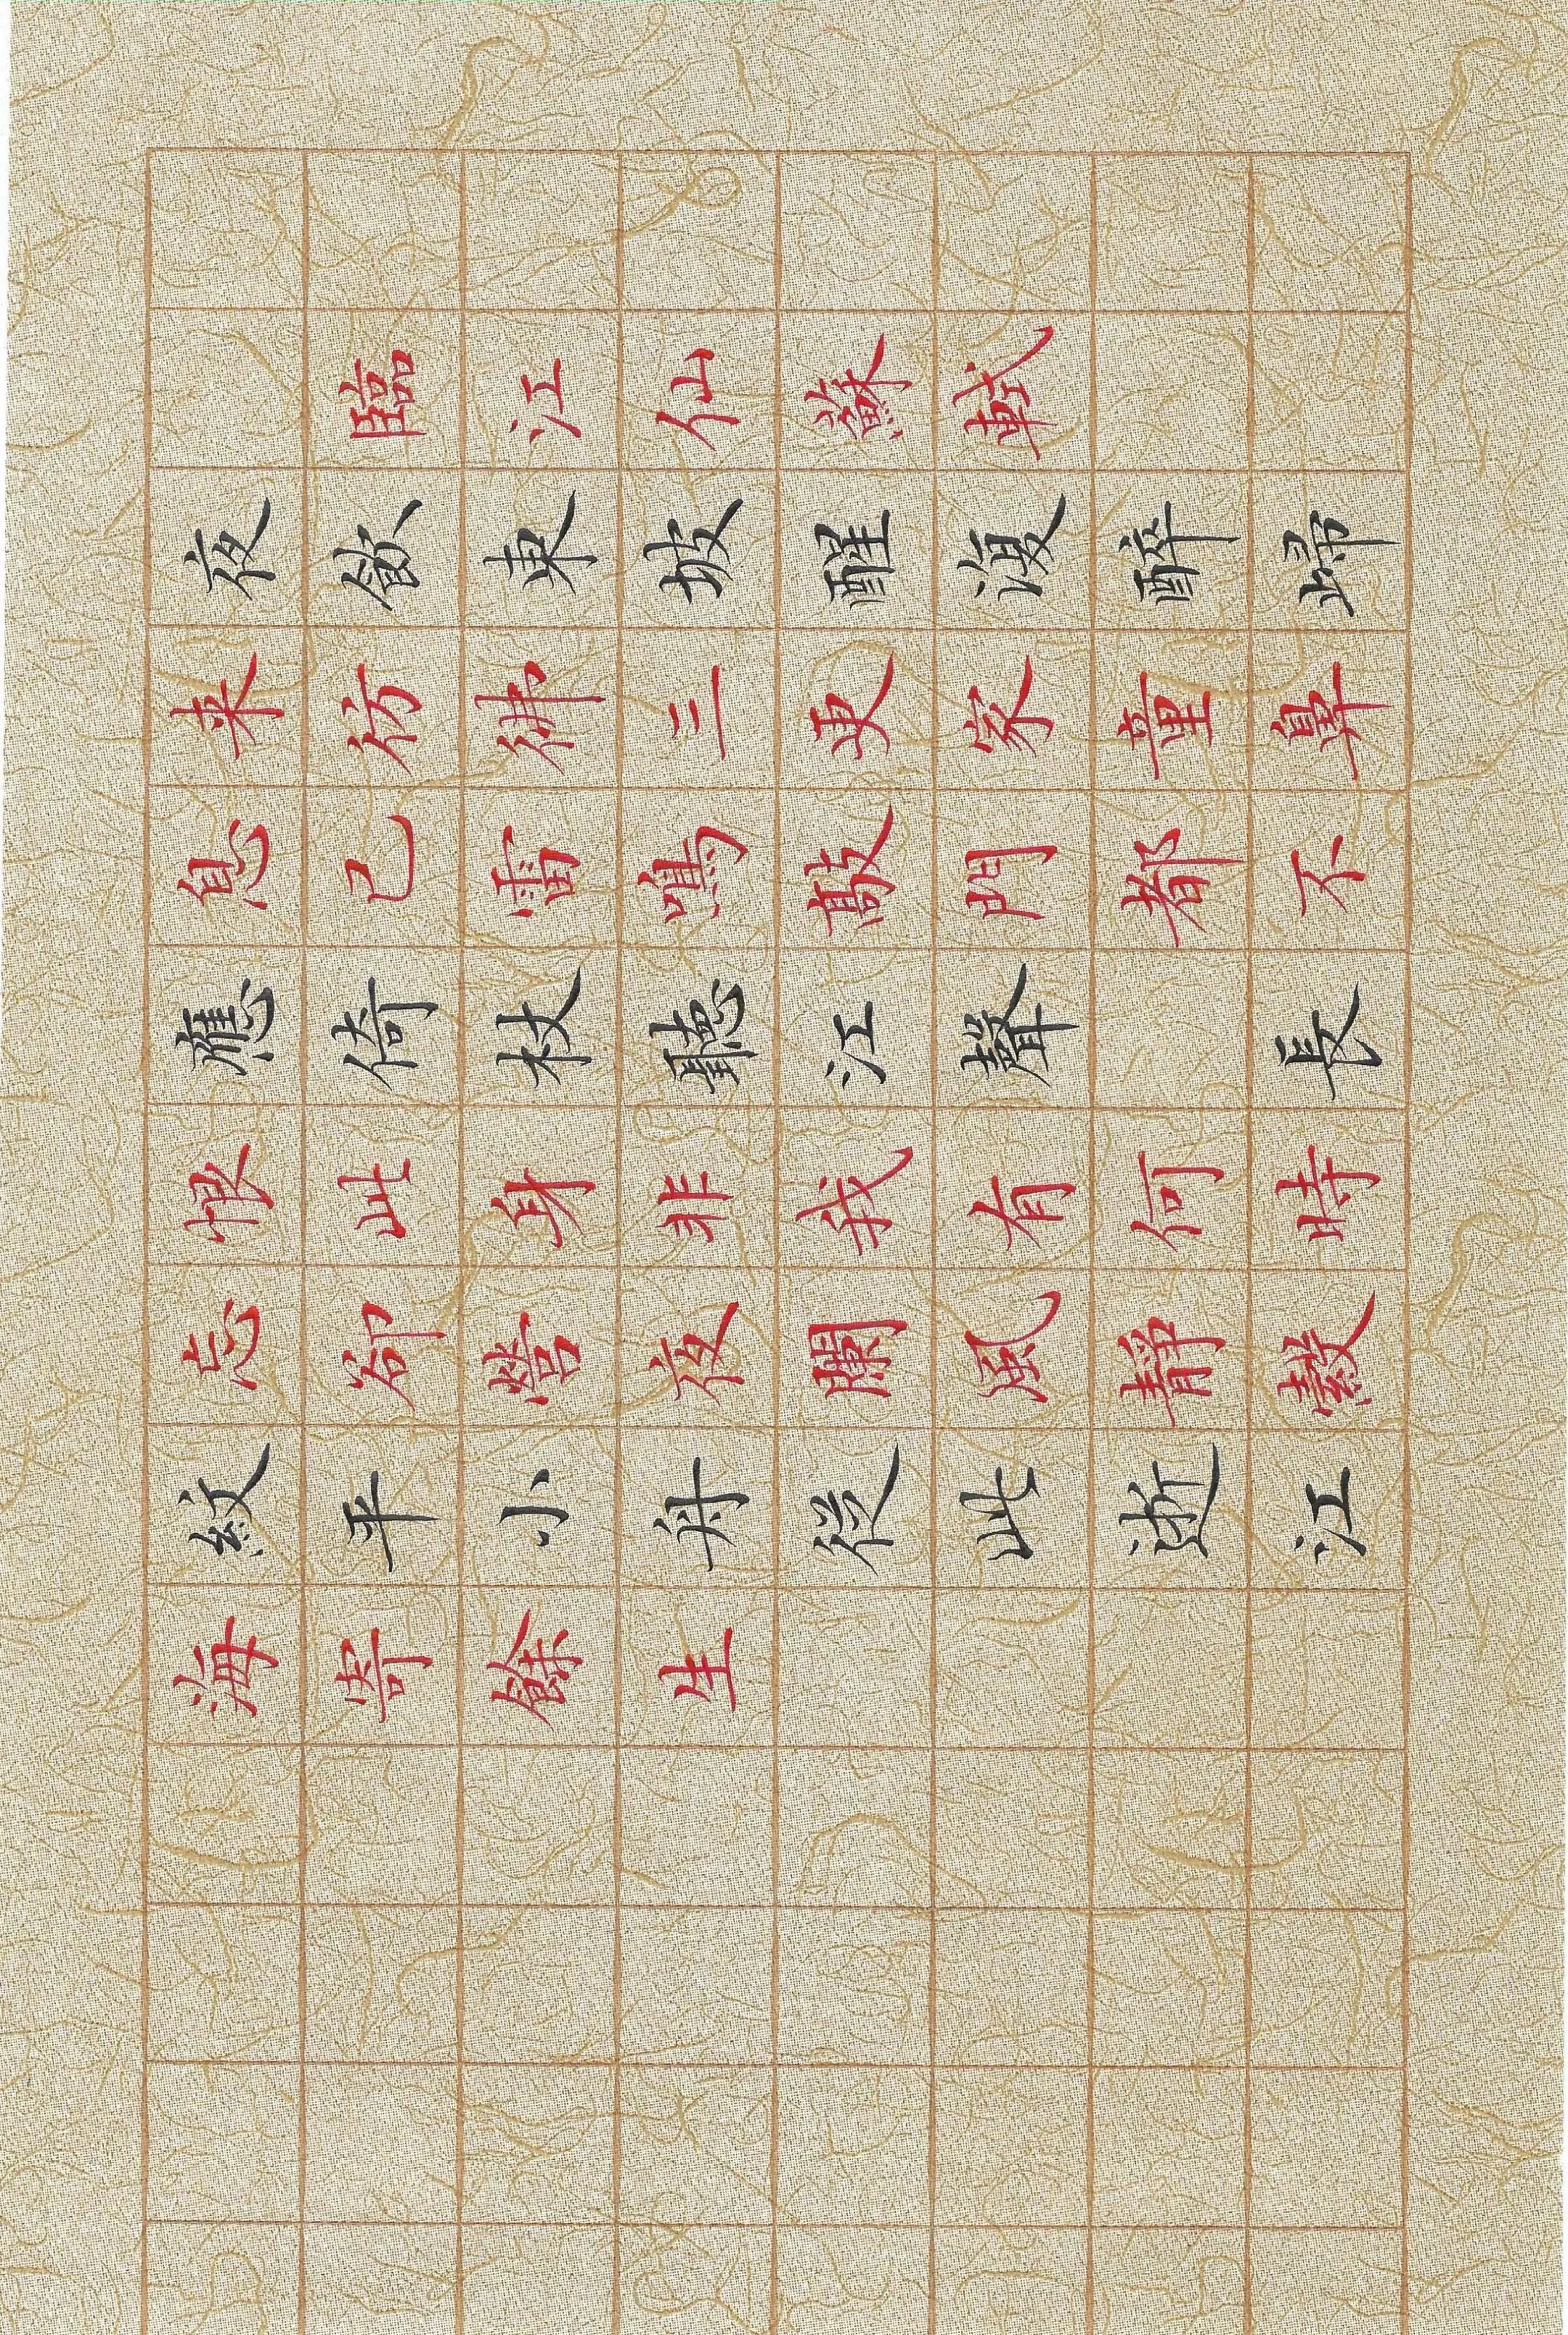 臨江仙蘇軾
夜飲東坡醒復醉歸
来彷彿三更家童鼻
息已雷鳴敲門都不
應倚杖聽江聲 長
恨此身非我有何時
忘卻營夜闌風靜縠
紋平小舟從此逝江
海寄餘生